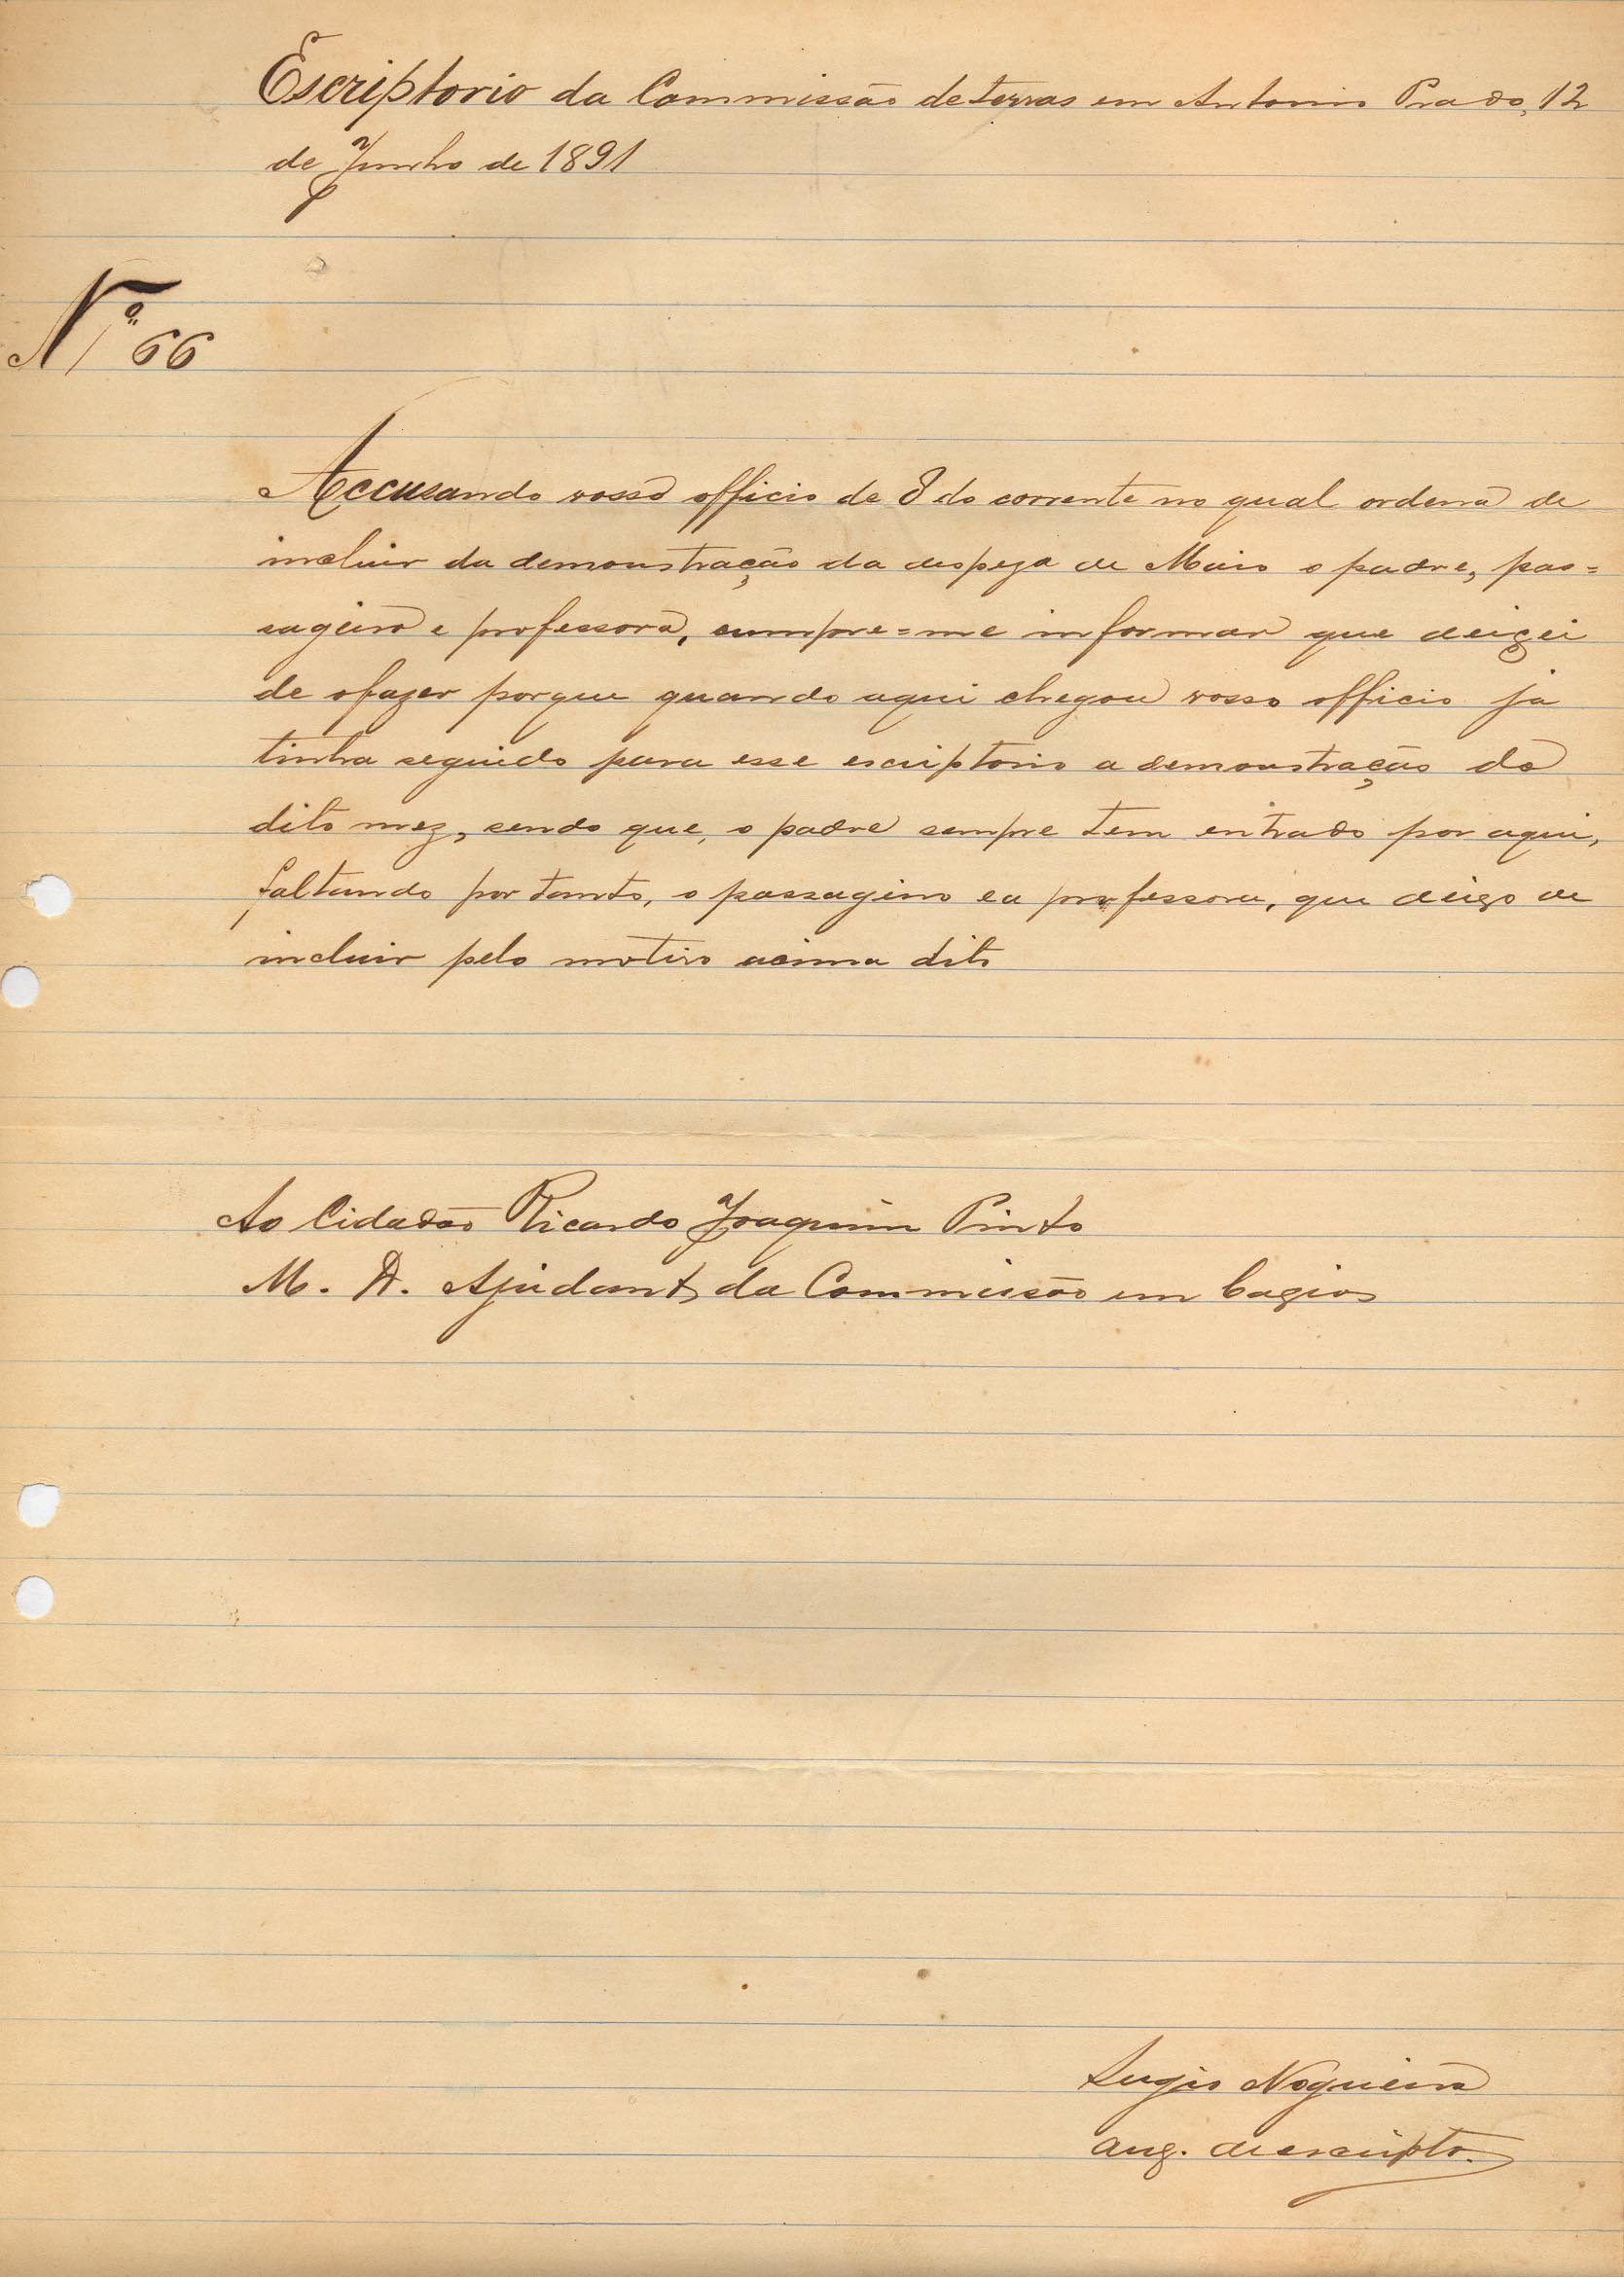 Escriptorio da Commissão de terras em Antonio Prado, 12
de Junho de 1891
Nº 66
Accusando vosso officio de 8 do corrente no qual ordena de
incluir da demonstração da despeza de Maio o padre, pas=
sageiro e professora, cumpre=me informar que deixei
de o fazer porque quando aqui chegou vosso officio ja
tinha seguido para esse escriptorio a demonstração do
dito mez, sendo que, o padre sempre tem entrado por aqui,
faltando por tanto, o passageiro e a professora, que deixo de
incluir pelo motivo acima dito
Ao Cidadão Ricardo Joaquim Pinto
M. D. Ajudante da Commissão em Caxias
Nogueira
aux. de escripto.